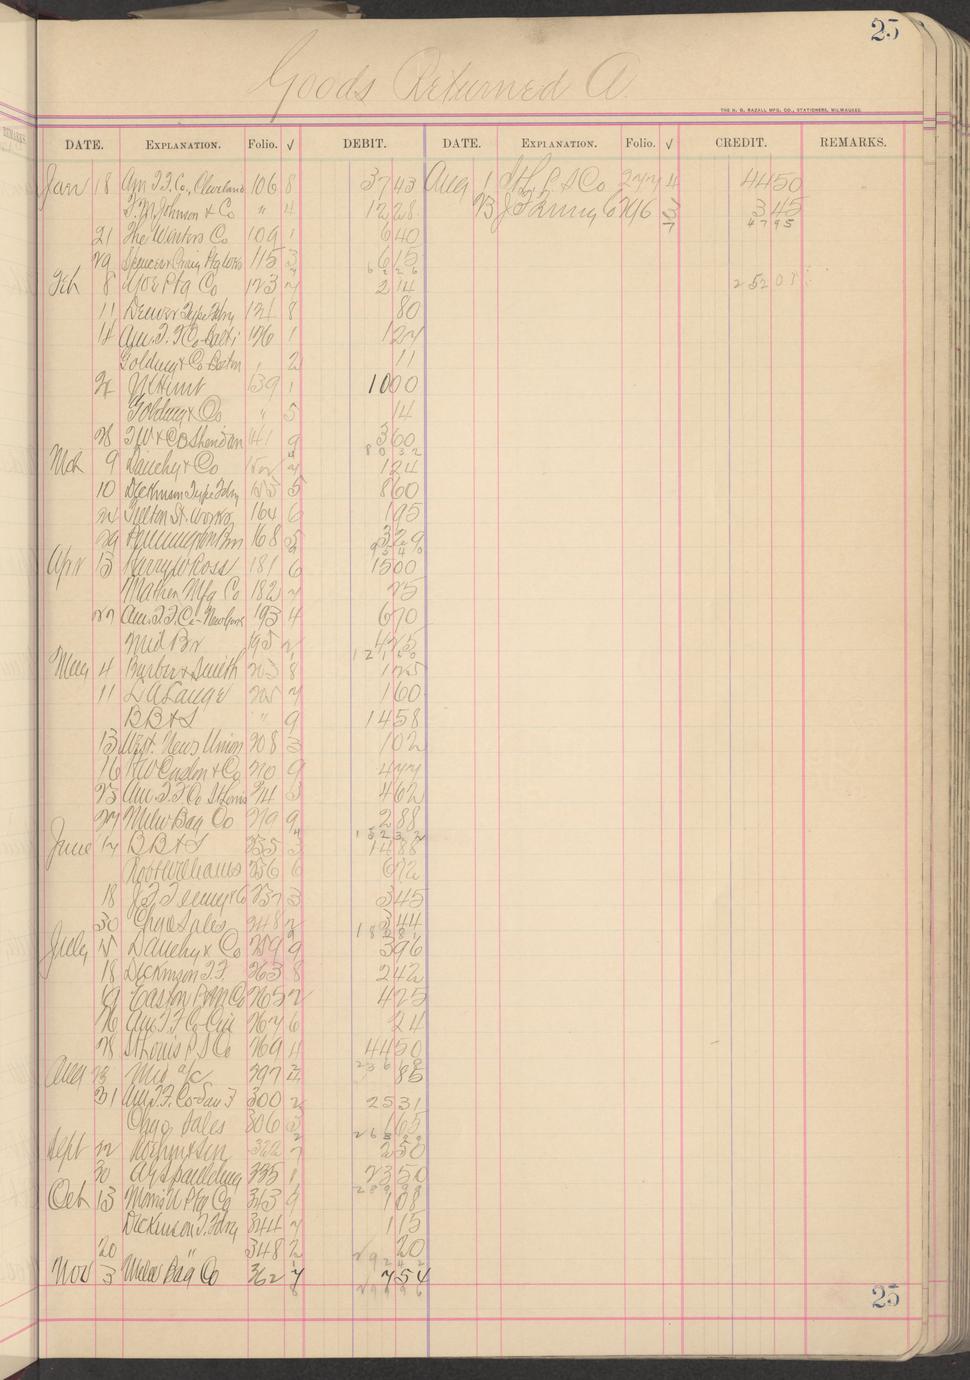 25
Goods Returned A
THE H. G. RAZALL MFG. CO., STATIONERS, MILWAUKEE.
DATE. EXPLANATION. Folio. √ DEBIT. DATE. EXPLANATION. Folio. √ CREDIT. REMARKS.
Jan 18 Am T.F. Co., Cleveland 106 8 37 43 Aug 1 St L. P. S Co 277 4 44 50
F. M. Johnson & Co " 4 12 28 23 796 3 3 45
47 95
21 The Winters Co 109 1 6 40
29 Spencer & Craig Ptg Wks 115 3 6 15
62 26
Feb 8 Ptg Co 123 7 2 14 252 05
11 Denver Type Fdry 124 8 80
14 Am. T. F Co Balti 126 1 1 27
Golding & Co Boston 2 11
139 1 10 00
Golding & Co " 5 14
28 T W & C B Sheridan 141 9 3 60
80 32
Mch 9 Dauchy & Co 7 1 24
10 Dickinson Type Fdry 155 5 8 60
164 6 1 95
29 168 5 3 29
95 40
Apr 13 Harry W Ross 181 6 15 00
Mathen Mfg Co 182 7 25
27 Am. T.F. Co - New York 193 4 6 70
195 2 4 25
121 60
May 4 Barber & Smith 203 8 1 25
11 L A Lange 205 7 1 60
B B & S " 9 14 58
13 West. News Union 208 3 1 02
16 H W Caslon & Co 210 9 4 77
23 Am. T. F Co St Louis 214 3 4 62
27 Milw Bag Co 219 9 2 88
152 32
June 17 B B & S 235 3 14 88
Robt Williams 236 6 6 72
18 237 3 3 45
30 Chgo Sales 248 2 3 44
July Dauchy & Co 259 9 3 96
18 Dickinson T.F. 263 8 2 42
19 Easton Co 265 2 4 25
26 Am T F Co Cin 267 6 24
28 St Louis P S Co 269 4 44 50
Aug 23 a/c 297 85
31 Am T.F. Co - San F 300 2 25 31
Chgo Sales 306 3 1 65
Sept 22 322 7 2 50
30 A G Spaulding 335 1 23 50
Oct 13 Ptg Co 343 9 1 08
Dickinson T. Fdry 344 7 1 15
20 " 348 2 20
Nov 3 Milw Bag Co 362 7 7 54
25